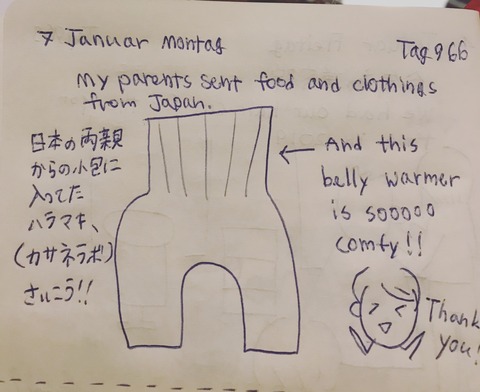 7 Januar Montag
Tag 966
My parents sent food and clothings
from Japan.
日本の両親
からの小包に
入ってた
ハラマキ、
(カサネラボ)
さいこう!!
← And this
belly warmer
is sooooo
comfy!!
Thank
you!